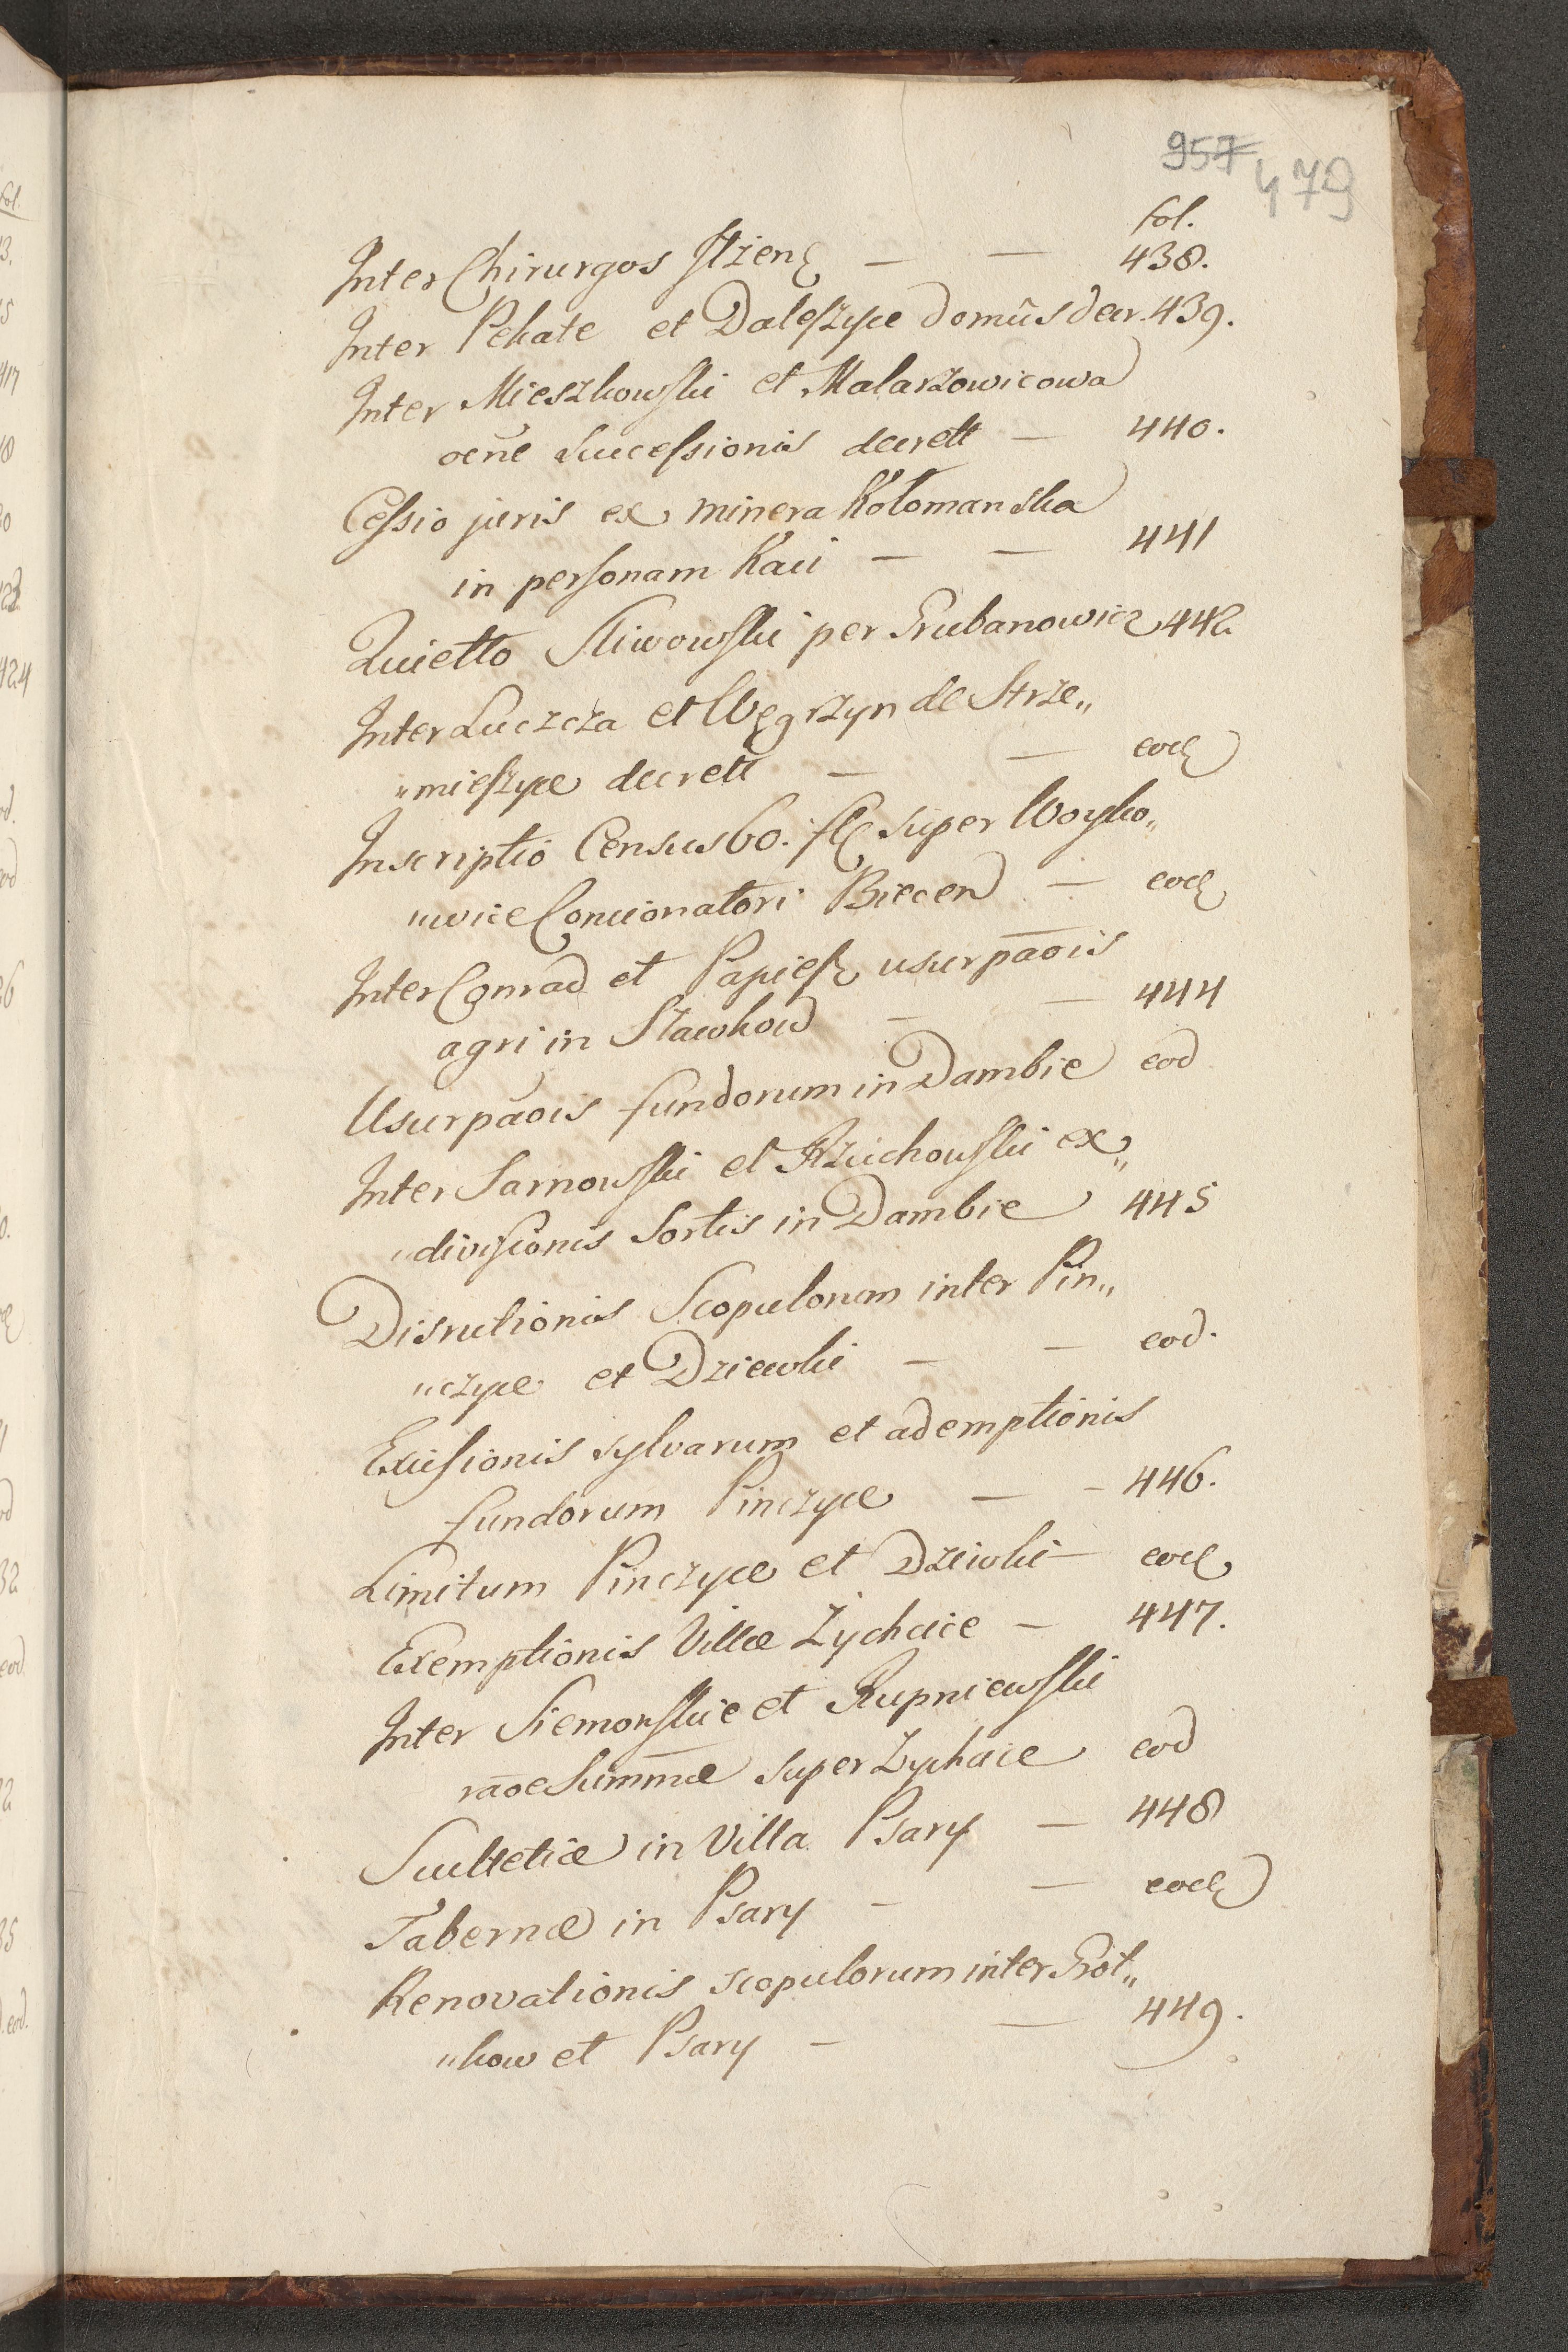 957 479
fol.
Inter Chirurgos Ilzen — — 438.
Inter Pekale et Daleszyce domûs decr. 439.
Inter Mieszkowski et Malarzowicowa
oēne Successionis decrett — 440.
Cessio juris ex minera Kołomanska
in personam Kaii — — 441
Quietto Sliwowski per Grubanowicz 442
Inter Łuczcza et Węgrzyn de Strze„
„mieszyce decrett — — eod
Inscriptio Census 60. fl super Woyko„
„wice Concionatori Biecen — eod
Inter Conrad et Papiesz usurpāois
agri in Sławkow — — 444
Usurpāois fundorum in Dambie eod
Inter Sarnowski et Rzuchowski ex„
„divisionis Sortis in Dambie 445
Disrutionis Scopulorum inter Pin„
„czyce et Dziewki — — eod.
Excisionis sylvarum et ademptionis
fundorum Pinczyce — - 446.
Limitum Pinczyce et Dziwki — eod
Exemptionis Villæ Zychcice — 447.
Inter Siemonskie et Rupniewski
rāoe Summæ super Zychcice eod
Scultetiæ in Villa Psary — 448
Tabernæ in Psary - — eod
Renovationis scopulorum inter Grot„
„kow et Psary - — 449.